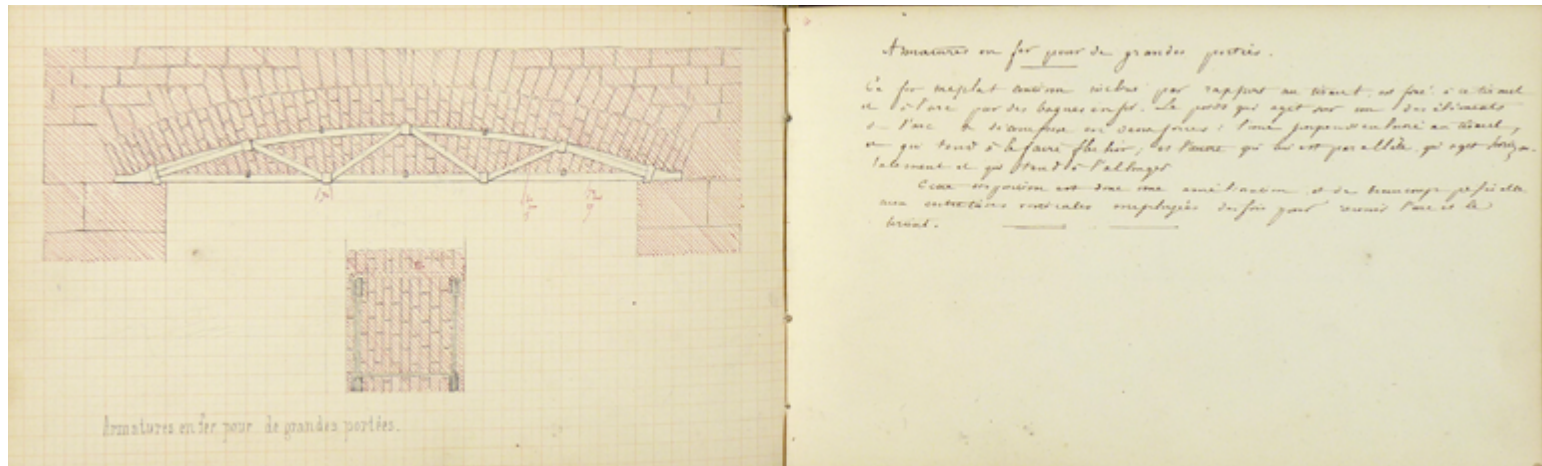 Armatures en fer pour de grandes portées.
Armatures en fer pour de grandes portées.
Ce fer méplat incliné par rapport au tirant, est fixé à ce tirant
et à l'arc par des bagues en fer. Le poids qui agit sur un des éléments
de l'arc se décompose en deux forces: l'une perpendiculaire au tirant,
et qui tend à le faire fléchir; et l'autre qui lui est parallèle, qui agit horizon-
talement et qui tend à l'allonger
Cette disposition est donc une amélioration et de beaucoup préférable
aux entretoises verticales employées des fois pour réunir l'arc et le
tirant.